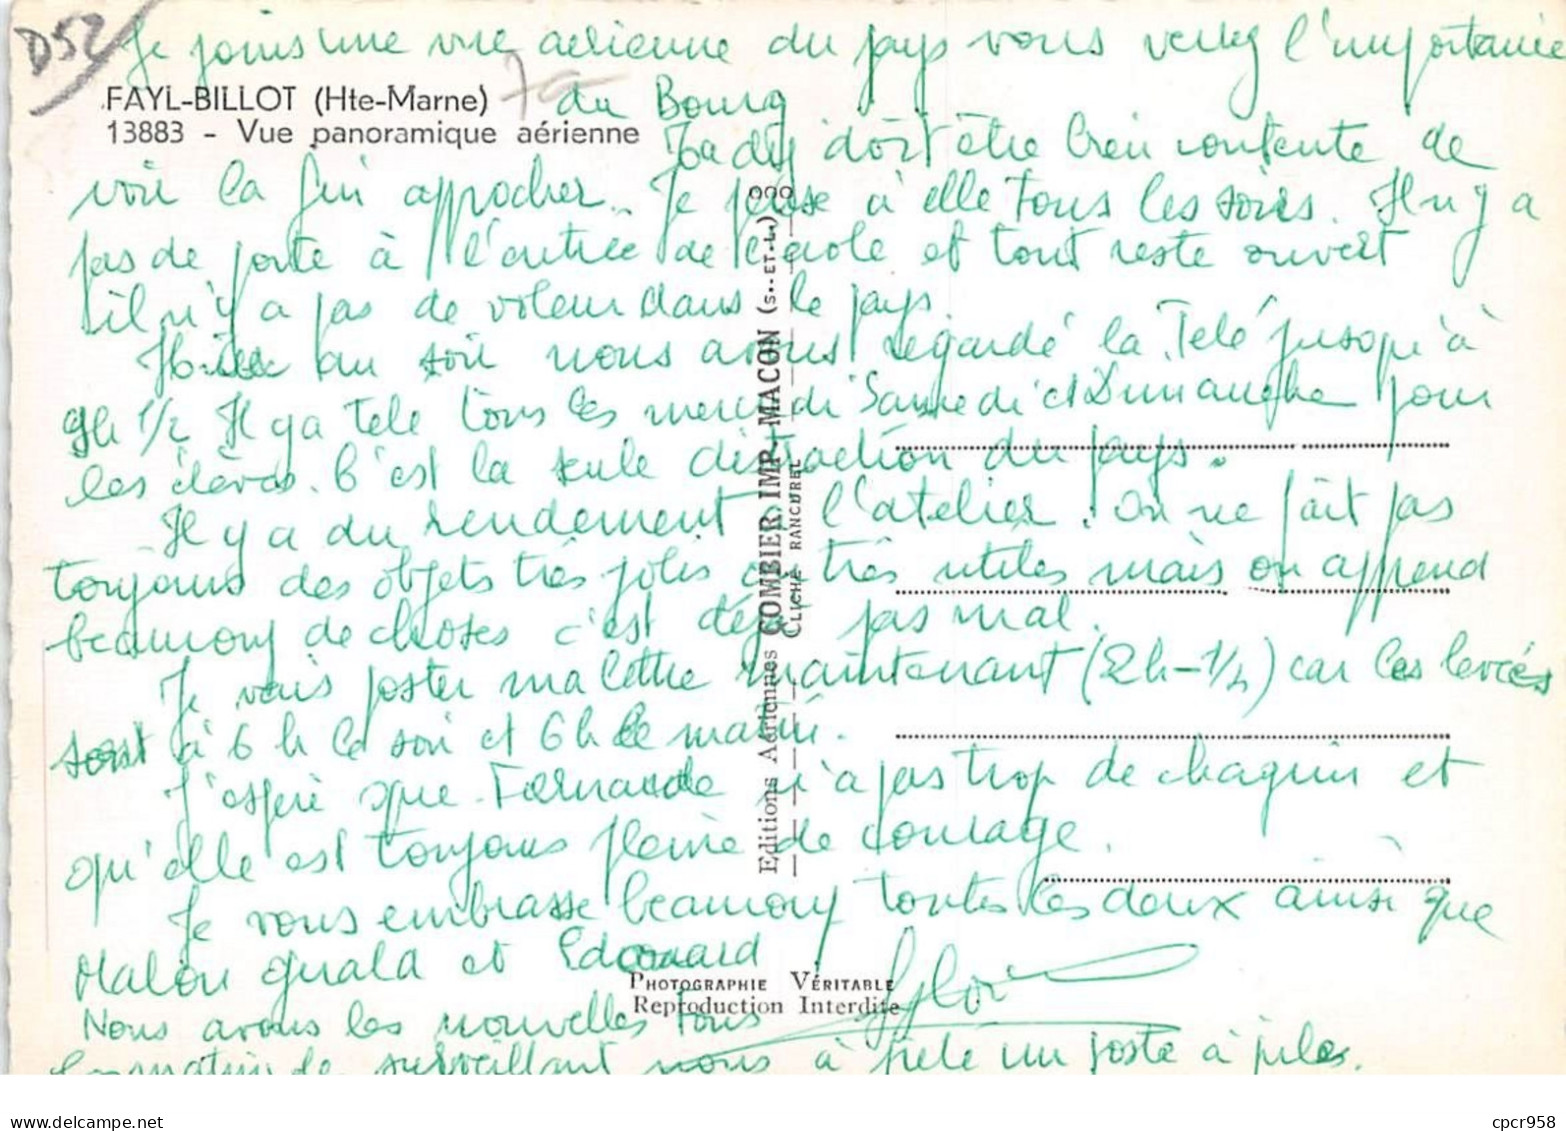 D52
Je joins une vue aérienne du pays vous verrez l'importance
FAYL-BILLOT (Hte-Marne)
du Bourg
13883 - Vue panoramique aérienne
doit être bien contente de
voir la fin approcher.. Je pense à elle tous les soirs. Il n'y a
pas de porte à l'entrée de l'école et tout reste ouvert
il n'y a pas de voleur dans le pays
au soir nous avons regardé la Télé jusqu'à
9h 1/2 Il y a télé tous les mercredi Samedi et Dimanche pour
les élèves. C'est la seule distraction du pays.
Il y a du rendement à l'atelier. On ne fait pas
toujours des objets très jolis et très utiles mais on apprend
beaucoup de choses c'est déjà pas mal.
Je vais poster ma lettre maintenant (2h-1/2) car les levées
sont à 6 h le soir et 6 h le matin.
J'espère que Fernande n'a pas trop de chagrin et
qu'elle est toujours pleine de courage.
Je vous embrasse beaucoup toutes les deux ainsi que
et Edouard
Nous avons les nouvelles tous
de surveillant nous a prêté un poste à piles.
Editions Aériennes COMBIER IMP. MACON (S.-ET-L.)
CLICHÉ RANCUREL
PHOTOGRAPHIE VÉRITABLE
Reproduction Interdite
cpcr958